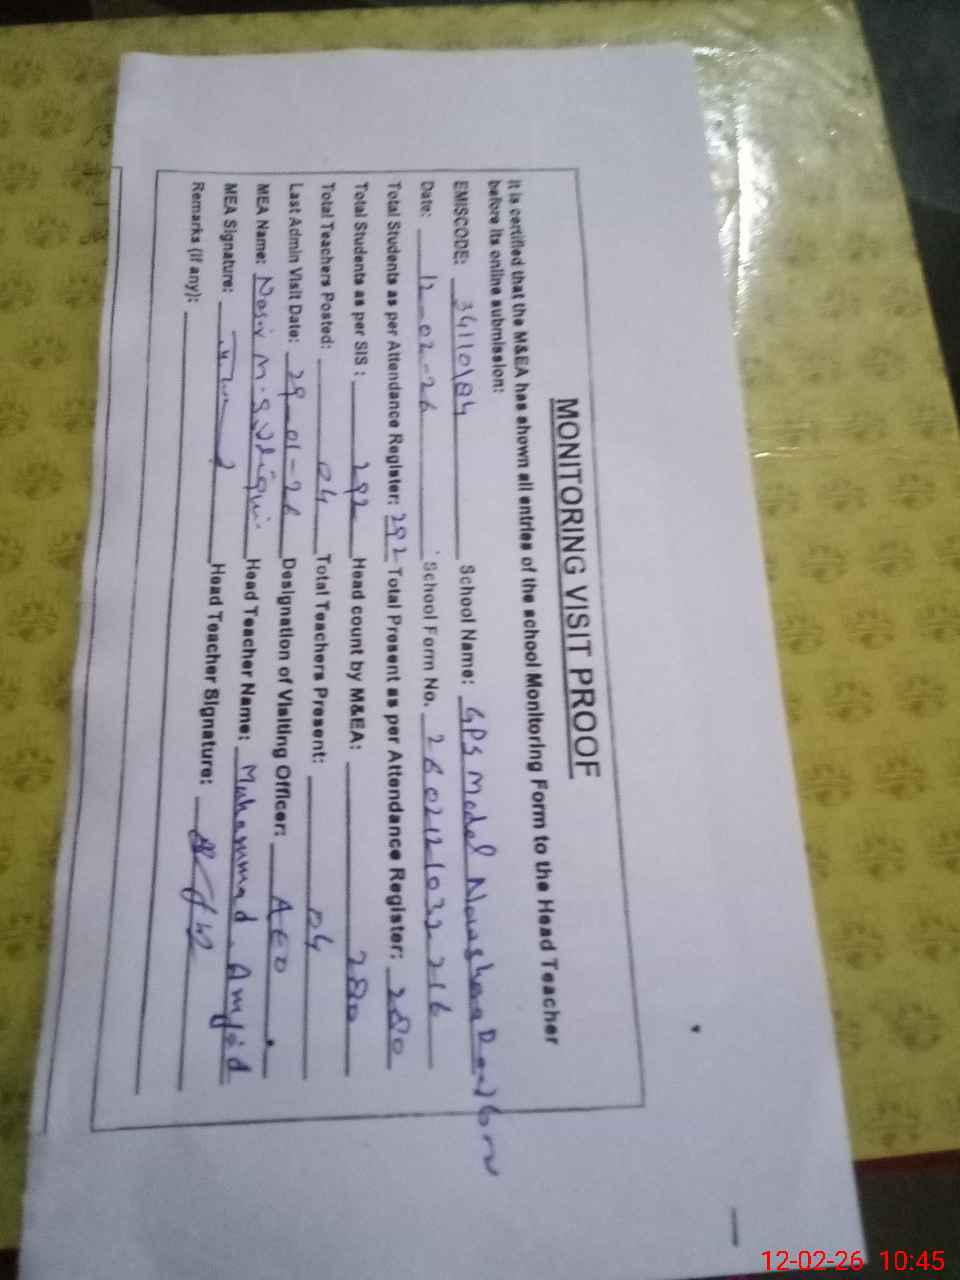 MONITORING VISIT PROOF
It is certified that the M&EA has shown all entries of the school Monitoring Form to the Head Teacher
before its online submission:
EMISCODE: 34110184 School Name: GPS Model Nowshera
Date: 12-02-26 School Form No. 260212103
Total Students as per Attendance Register: 292 Total Present as per Attendance Register: 280
Total Students as per SIS: 292 Head count by M&EA: 280
Total Teachers Posted: 04 Total Teachers Present: 04
Last Admin Visit Date: 29-01-26 Designation of Visiting Officer: AEO
MEA Name: Nasir M. Head Teacher Name: Muhammad Amjad
MEA Signature: Head Teacher Signature:
Remarks (if any):
12-02-26 10:45